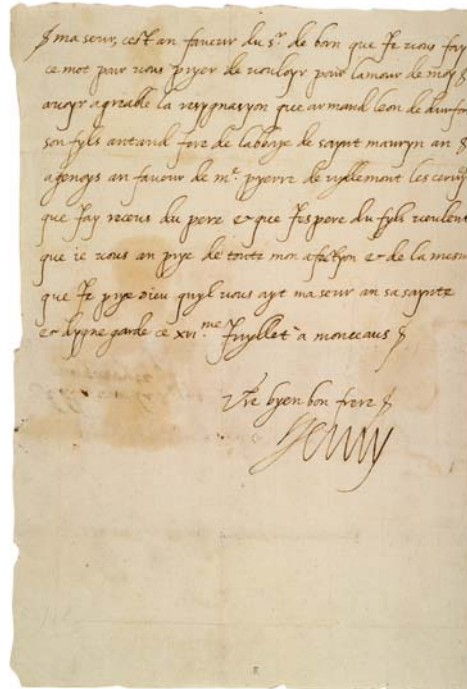 ma seur, cest an faveur du sr. de born que je vous fay
ce mot pour vous pryer de vouloyr pour lamour de moy
avoyr agreable la resygnasyon que armand leon de durfor
son fyls antand fere de labbaye de saynt mauryn an
agenoys an faveur de mr. pyerre de vyllemont les servy
que jay receus du pere & que jespere du fyls veulent
que je vous an prye de toute mon afectyon & de la mesm
que je prye dieu quyl vous ayt ma seur an sa saynte
& dygne garde ce xvi.me juyllet à monceaus
Vre byen bon frere
Henry